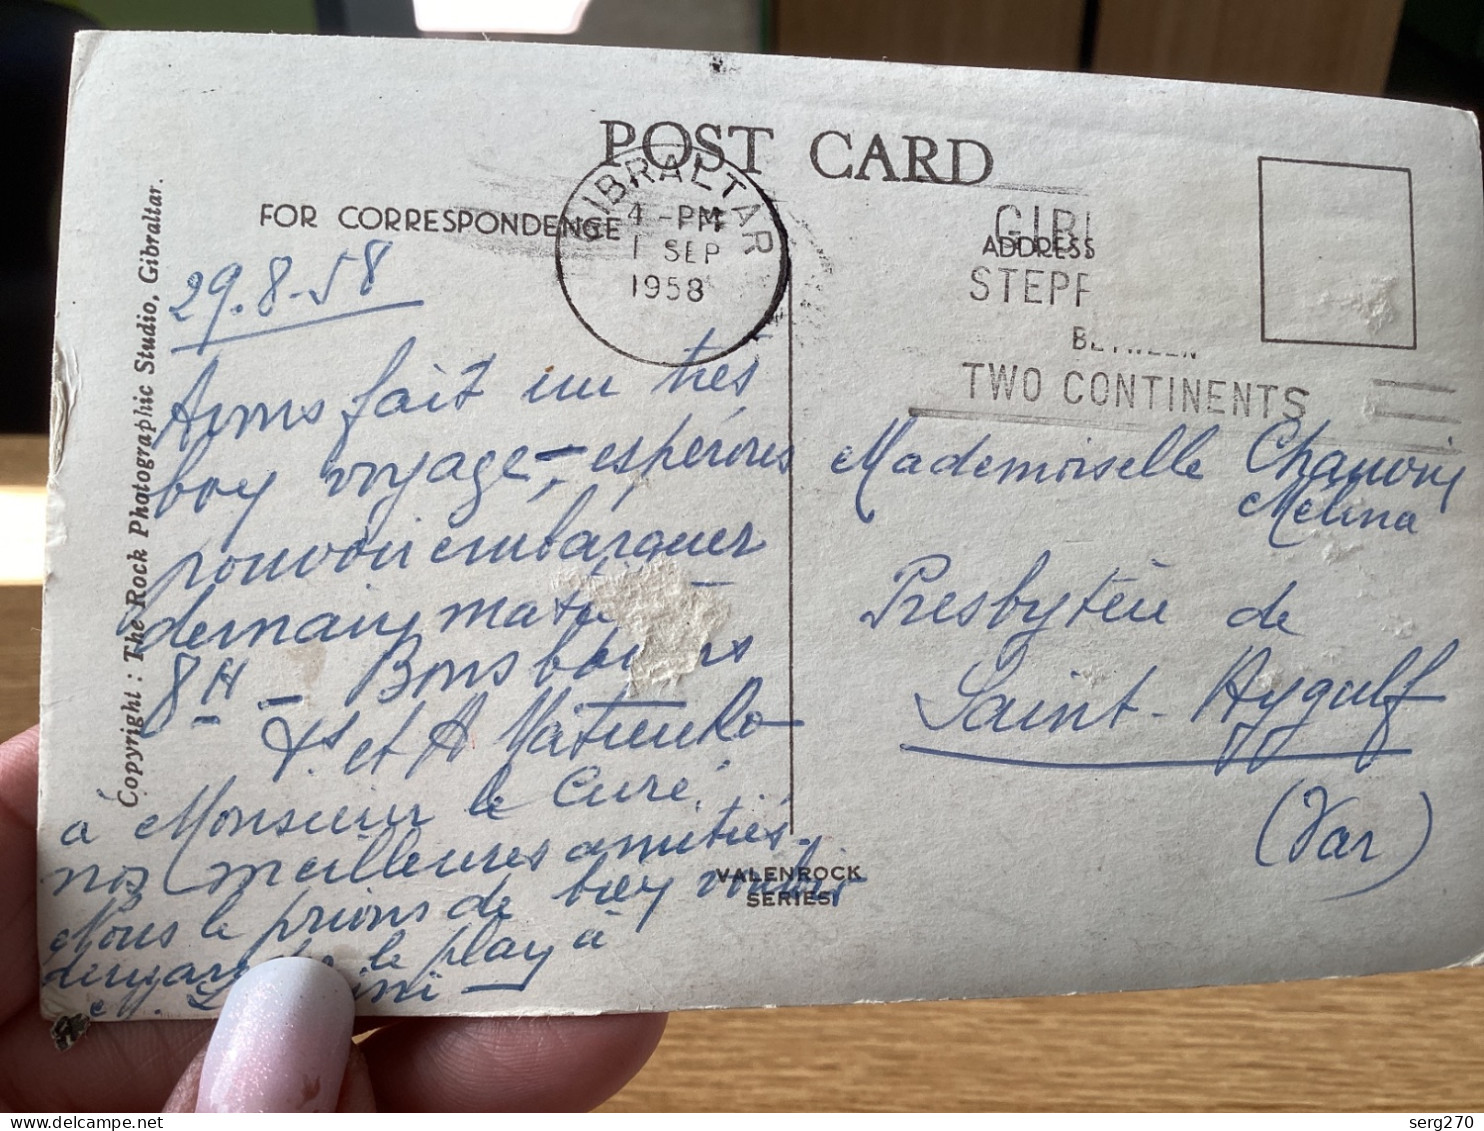 POST CARD
FOR CORRESPONDENCE
ADDRESS
GIBRALTAR
4 - PM
1 SEP
1958
GIBL
STEPP
BETWEEN
TWO CONTINENTS
Copyright : The Rock Photographic Studio, Gibraltar.
29.8.58
Avons fait un très
bon voyage, - espérons
pouvoir embarquer
demain mati
8H - Bons baisers
et A
à Monsieur le Curé,
nos meilleures amitiés.
Nous le prions de bien vouloir
le plan à
Mademoiselle Chauvin
Mélina
Presbytère de
Saint-Aygulf
(Var)
VALENROCK
SERIES
serg270